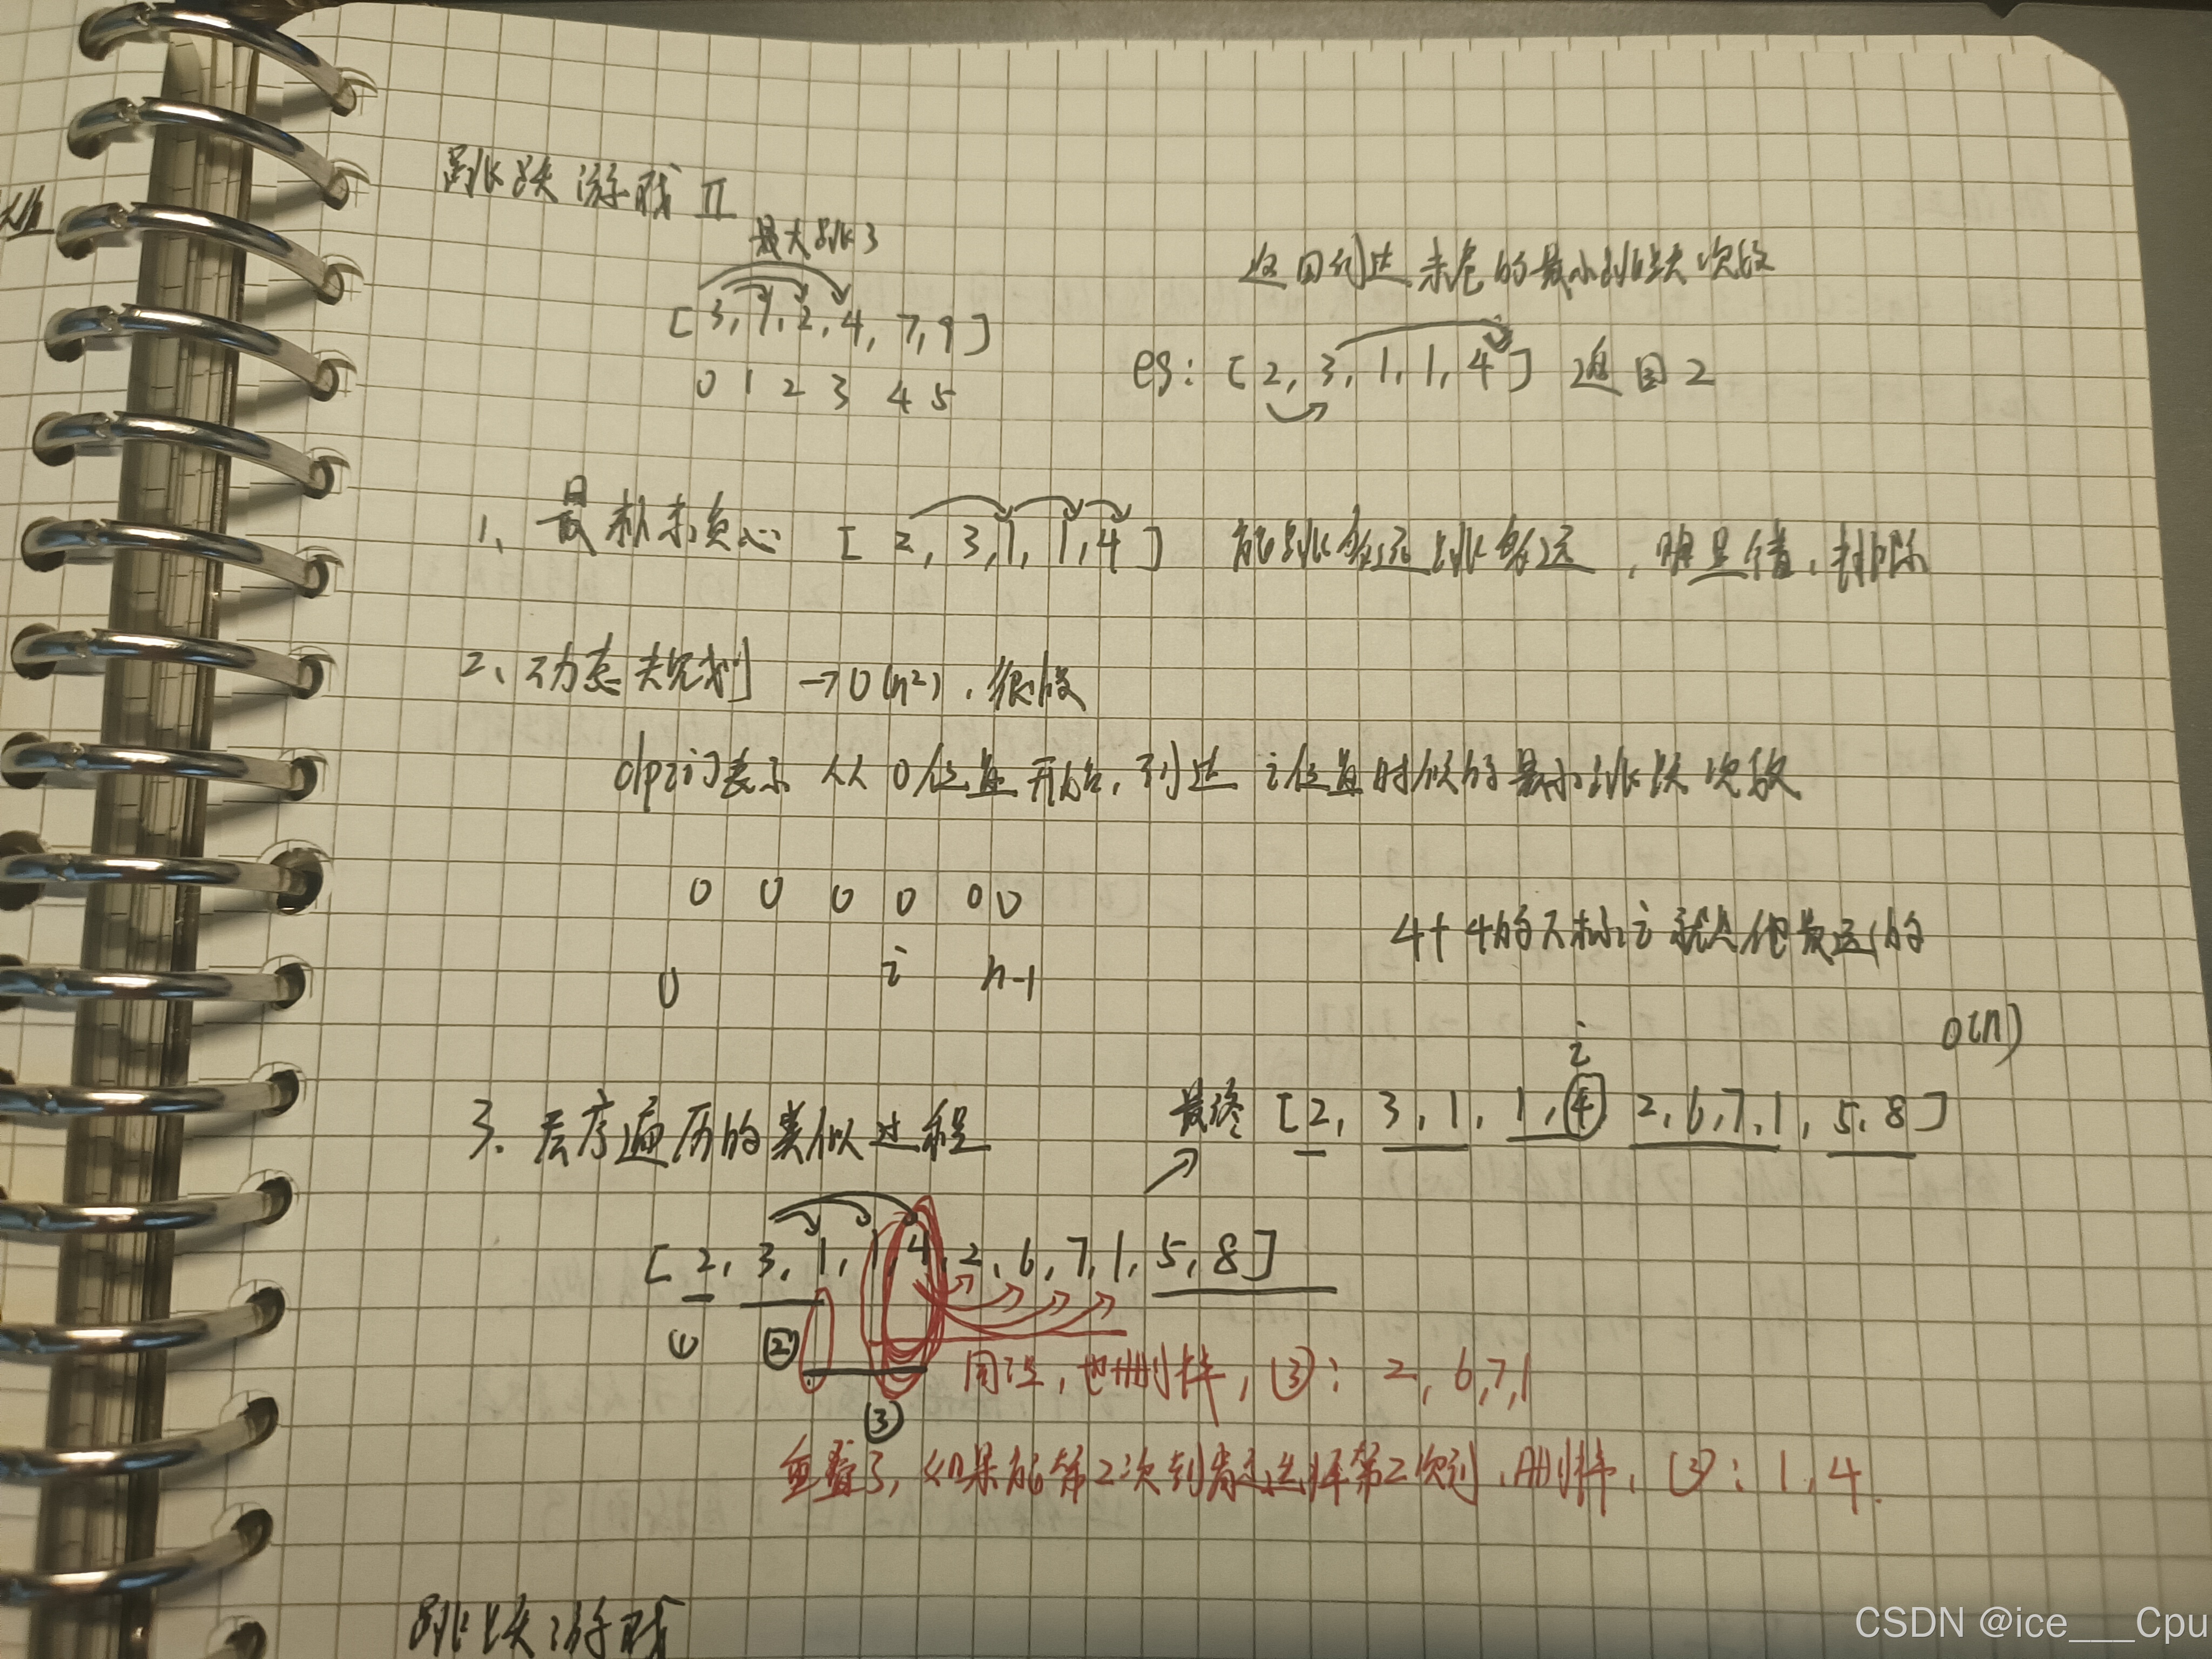 跳跃游戏 II
最大跳3
[3, 1, 2, 4, 7, 9]
0 1 2 3 4 5
返回到达末尾的最小跳跃次数
eg: [2, 3, 1, 1, 4] 返回2
1、最朴素贪心 [2, 3, 1, 1, 4] 能跳多远跳多远，明显错，排除
2、动态规划 → O(n²)，很慢
dp[i]表示 从 0位置开始，到达 i位置时候的最小跳跃次数
0 0 0 0 0 0
0 i n-1
4+4的下标i就是他最远的
O(n)
i
3、层序遍历的类似过程
最终 [2, 3, 1, 1, 4 2, 6, 7, 1, 5, 8]
[2, 3, 1, 1, 4, 2, 6, 7, 1, 5, 8]
① ②
同理，也删掉，③: 2, 6, 7, 1
③
重叠了，如果能第2次到肯定选择第2次到，删掉，③: 1, 4.
跳跃游戏
CSDN @ice___Cpu